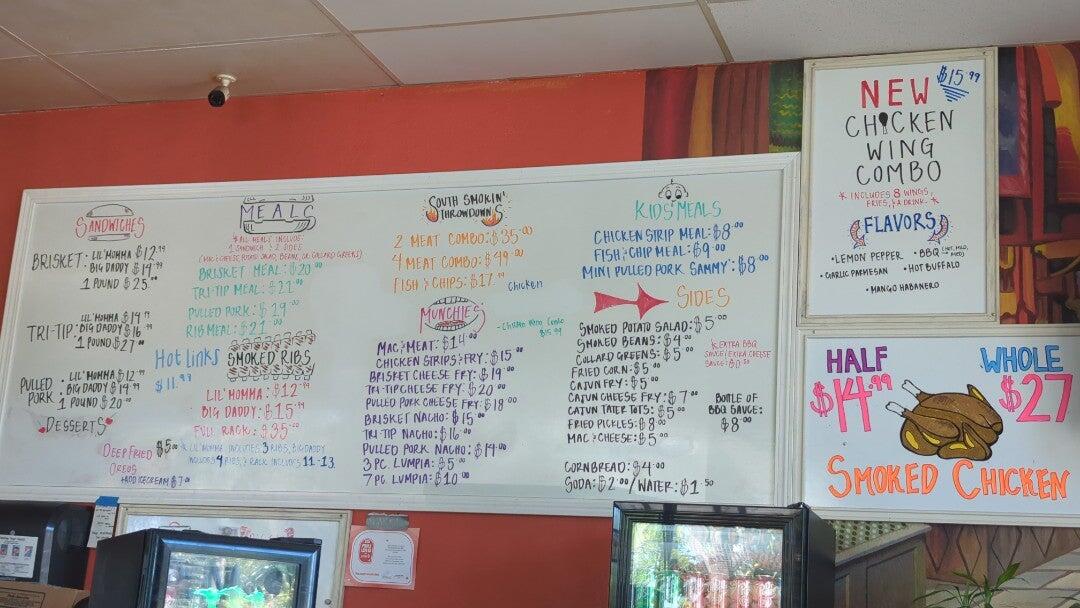 SANDWICHES
BRISKET · LIL' MOMMA $12.99
BIG DADDY $14.99
1 POUND $25.00
TRI-TIP · LIL' MOMMA $14.99
BIG DADDY $16.99
1 POUND $27.00
PULLED PORK · LIL' MOMMA $12.99
BIG DADDY $14.99
1 POUND $20.00
DESSERTS
DEEP FRIED OREOS $5.00
+ADD ICECREAM $7.00
MEALS
*ALL MEALS INCLUDE
1 SANDWICH & 2 SIDES
(MAC & CHEESE, POTATO SALAD, BEANS, OR COLLARD GREENS)
BRISKET MEAL: $20.00
TRI-TIP MEAL: $21.00
PULLED PORK: $19.00
RIB MEAL: $21.00
HOT LINKS
$11.99
SMOKED RIBS
LIL' MOMMA: $12.99
BIG DADDY: $15.99
FULL RACK: $35.00
* LIL' MOMMA INCLUDES 3 RIBS, BIG DADDY
INCLUDES 4 RIBS, & RACK INCLUDES 11-13
SOUTH SMOKIN'
THROWDOWNS
2 MEAT COMBO: $35.00
4 MEAT COMBO: $49.00
FISH & CHIPS: $17.99
Chicken
MUNCHIES
$15.99
MAC & MEAT: $14.00
CHICKEN STRIPS & FRY: $15.00
BRISKET CHEESE FRY: $19.00
TRI-TIP CHEESE FRY: $20.00
PULLED PORK CHEESE FRY: $18.00
BRISKET NACHO: $15.00
TRI TIP NACHO: $16.00
PULLED PORK NACHO: $14.00
3 PC. LUMPIA: $5.00
7 PC. LUMPIA: $10.00
KIDS' MEALS
CHICKEN STRIP MEAL: $8.00
FISH & CHIP MEAL: $9.00
MINI PULLED PORK SAMMY: $8.00
SIDES
SMOKED POTATO SALAD: $5.00
SMOKED BEANS: $4.00
COLLARD GREENS: $5.00
FRIED CORN: $5.00
CAJUN FRY: $5.00
CAJUN CHEESE FRY: $7.00
CAJUN TATER TOTS: $5.00
FRIED PICKLES: $8.00
MAC & CHEESE: $5.00
CORNBREAD: $4.00
SODA: $2.00/WATER: $1.50
*EXTRA BBQ
SAUCE/EXTRA CHEESE
SAUCE: $0.50
BOTTLE OF
BBQ SAUCE:
$8.00
NEW $15.99
CHICKEN
WING
COMBO
* INCLUDES 8 WINGS, *
FRIES, & A DRINK.
FLAVORS
• LEMON PEPPER • BBQ (HOT, MILD, MED)
• GARLIC PARMESAN • HOT BUFFALO
• MANGO HABANERO
HALF WHOLE
$14.99 $27
SMOKED CHICKEN